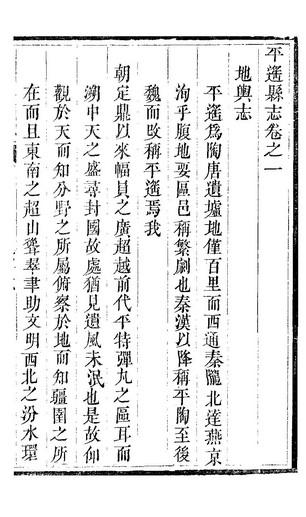 平遙縣志卷之一
地輿志
平遙爲陶唐遺墟地僅百里而西通秦隴北達燕京
洵乎腹地要區邑稱繁劇也秦漢以降稱平陶至後
魏而改稱平遙焉我
朝定鼎以來幅員之廣超越前代平特彈丸之區耳而
溯中天之盛尋封國故處猶見遺風未泯也是故仰
觀於天而知分野之所屬俯察於地而知疆圉之所
在而且東南之超山聳翠聿助文明西北之汾水環